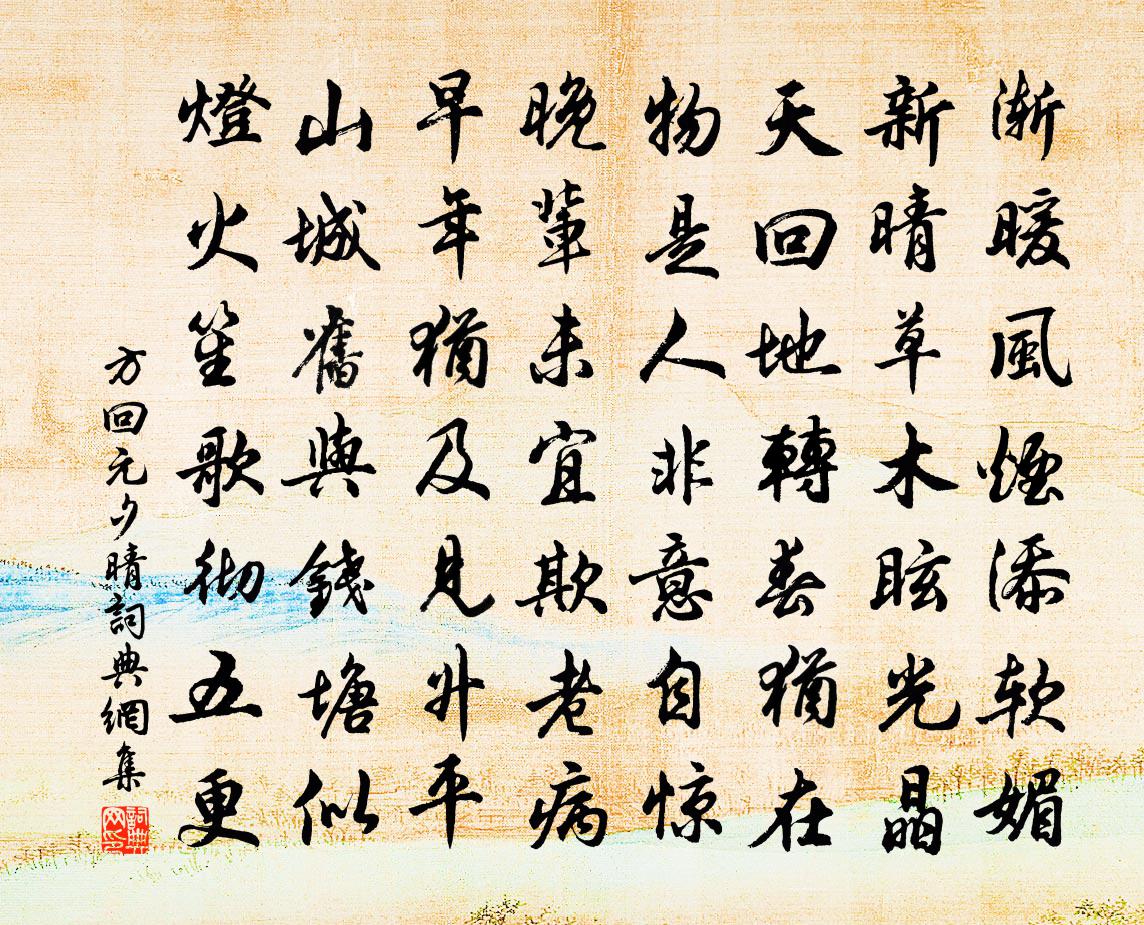 漸暖風煙添軟媚
新晴草木眩光晶
天回地轉春猶在
物是人非意自惊
晚輩未宜欺老病
早年猶及見升平
山城舊與錢塘似
燈火笙歌彻五更
方回元夕晴詞典網集
詞典网印